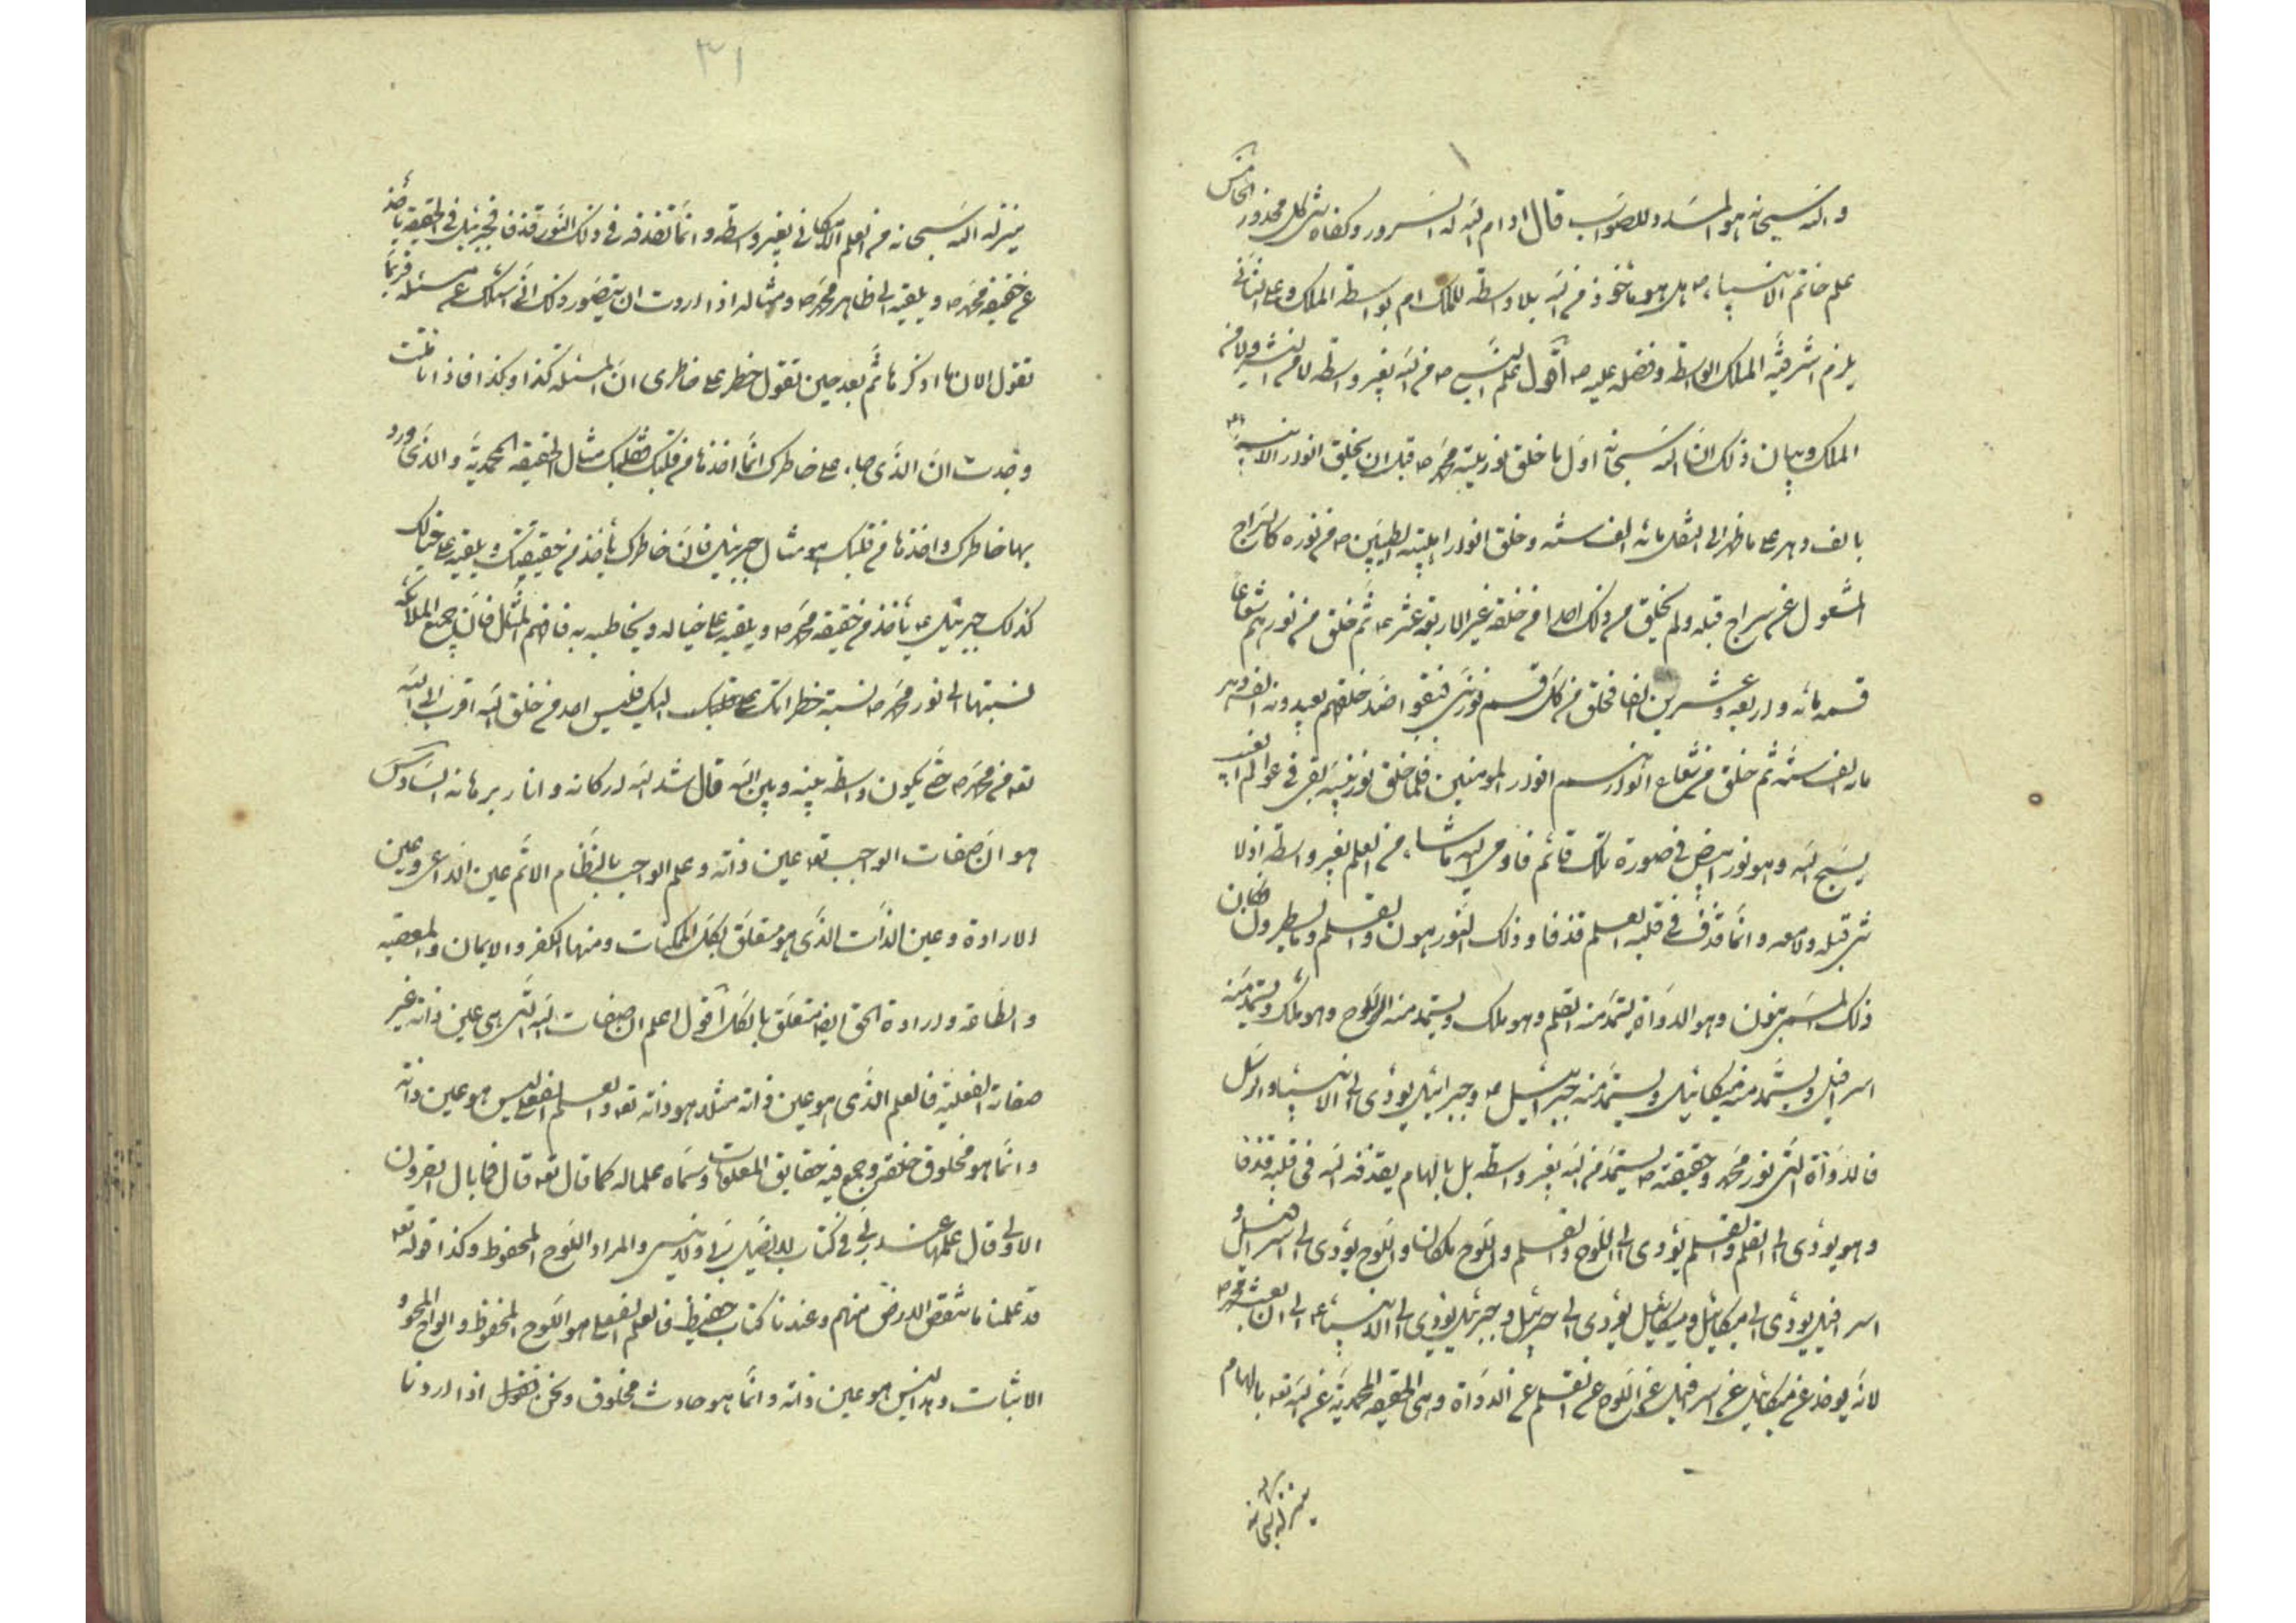 والله سبحانه هو المسدد للصواب قال ادام الله له السرور وكفاه شر كل محذور الخامس
علم خاتم الانبياء ص هل هو مأخوذ من الله بلا واسطة للملك ام بواسطة الملك وعلى الثاني
يلزم اشرفية الملك الواسطة وفضله عليه ص اقول علم النبي ص من الله بغير واسطة لا من البشر ولا من
الملك وبيان ذلك ان الله سبحانه اول ما خلق نور نبيه محمد ص قبل ان يخلق انوار الانبياء ع
بالف دهر على ما ظهر لي الدهر مائة الف سنة وخلق انوار اهل بيته الطيبين ص من نوره كالسراج
المشعول من سراج قبله ولم يخلق من ذلك احدا من خلقه غير الاربعة عشر ع ثم خلق من نورهم شعاعا
قسمه مائة واربعة وعشرين الفا فخلق من كل قسم نور نبي فبقوا ضد خلقهم يعبدونه الف دهر
مائة الف سنة ثم خلق من شعاع انوارهم انوار المؤمنين فلما خلق نور نبيه بقي في عوالم الغيب
يسبح الله وهو نور ابيض في صورة ملك قائم فاوحى اليه ما شاء من العلم بغير واسطة اذ لا
شيء قبله ولا معه وانما قذف في قلبه العلم قذفا وذلك النور هو ن والقلم وما يسطرون وكان
ذلك المسمى بنون وهو الدواة يستمد منه القلم وهو ملك ويستمد منه اللوح وهو ملك ويستمد منه
اسرافيل ويستمد منه ميكائيل ويستمد منه جبرائيل ع وجبرائيل يؤدي الى الانبياء والرسل
فالدواة التي نور محمد وحقيقته ص يستمد من الله بغير واسطة بل بالهام يقذفه الله في قلبه قذفا
وهو يؤدي الى القلم والقلم يؤدي الى اللوح والقلم واللوح ملكان واللوح يؤدي الى اسرافيل و
اسرافيل يؤدي الى ميكائيل وميكائيل يؤدي الى جبرئيل وجبرئيل يؤدي الى الانبياء ع الى ان بعث محمد ص
لانه يوخذ عن ميكائيل عن اسرافيل عن اللوح عن القلم عن الدواة وهي الحقيقة المحمدية عن الله تعه بالهام
ينزله الله سبحانه
٣١
ينزله الله سبحانه من العلم الامكاني بغير واسطة وانما تقذفه في ذلك النور قذفا فجبرئيل في الحقيقة ياخذ
عن حقيقة محمد ص ويلقيه الى ظاهر محمد ص ومثاله اذا اردت ان تتصور ذلك اني اسئلك عن مسئلة فربما
تقول الان ما اذكرها ثم بعد حين تقول خطر على خاطري ان المسئلة كذا وكذا فاذا تاملت
وجدت ان الذي جاء على خاطرك انما اخذها من قلبك فقلبك مثال الحقيقة المحمدية والذي ورد
بها خاطرك واخذها من قلبك هو مثال جبرئيل فان خاطرك يأخذ من حقيقتك ويلقيه على خيالك
كذلك جبرئيل ع يأخذ من حقيقة محمد ص ويلقيه على خياله ويخاطبه به فافهم المثل فان جميع الملائكة
نسبتها الى نور محمد ص نسبة خطراتك على قلبك اليك فليس احد من خلق الله اقرب الى الله
تعه من محمد ص حتى يكون واسطة بينه وبين الله قال شد الله اركانه وانار برهانه السادس
هو ان صفات الواجب تعه عين ذاته وعلم الواجب بالنظام الاتم عين الداعي وعين
الارادة وعين الذات الذي هو متعلق بكل الممكنات ومنها الكفر والايمان والمعصية
والطاعة وارادة الحق ايضا متعلق بالكل اقول اعلم ان صفات الله التي هي عين ذاته غير
صفاته الفعلية فالعلم الذي هو عين ذاته مثلا هو ذاته تعه والعلم الفعلي ليس هو عين ذاته
وانما هو مخلوق خلقه وجمع فيه حقايق المعلومات وسماه علما له كما قال تعه قال فما بال القرون
الاولى قال علمها عند ربي في كتاب لا يضل ربي ولا ينسى والمراد اللوح المحفوظ وكذا قوله تعه
قد علمنا ما تنقص الارض منهم وعندنا كتاب حفيظ فالعلم الفعلي هو اللوح المحفوظ والواح المحو و
الاثبات وهذا ليس هو عين ذاته وانما هو حادث مخلوق ونحن نقول اذا اردنا